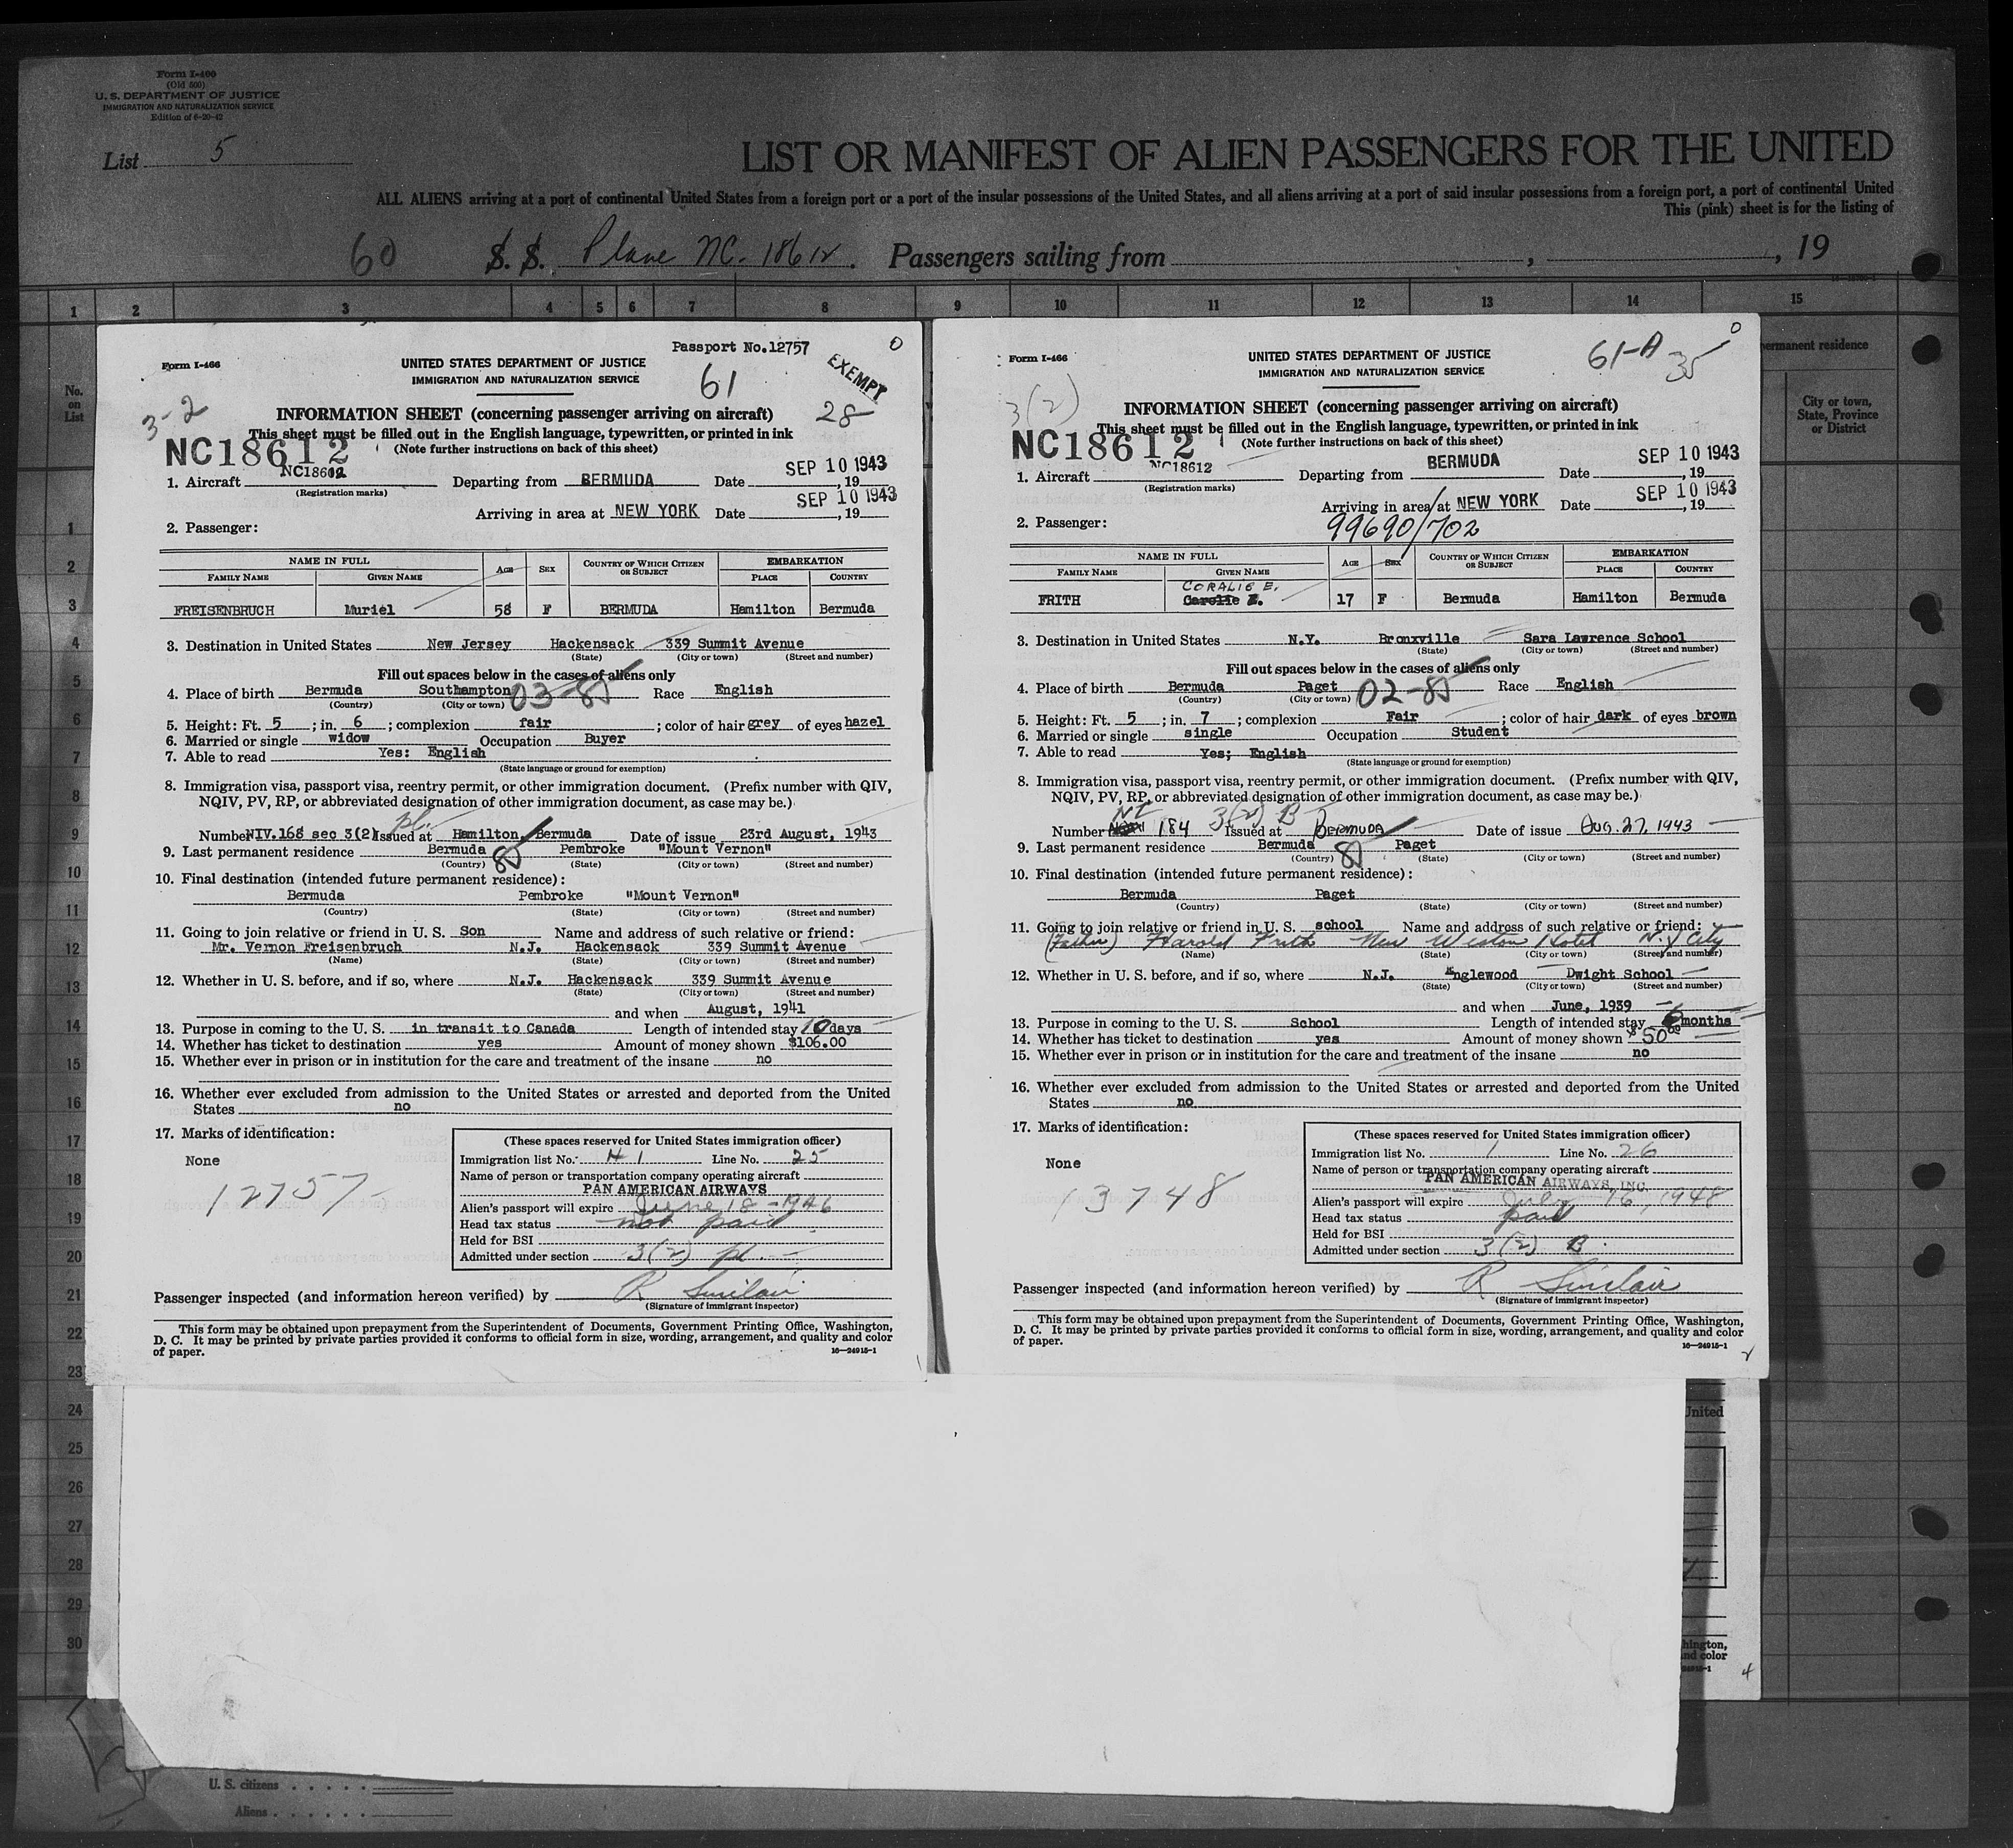 Form I-400
(Old 500)
U. S. DEPARTMENT OF JUSTICE
IMMIGRATION AND NATURALIZATION SERVICE
Edition of 6-20-42
List 5
LIST OR MANIFEST OF ALIEN PASSENGERS FOR THE UNITED
ALL ALIENS arriving at a port of continental United States from a foreign port or a port of the insular possessions of the United States, and all aliens arriving at a port of said insular possessions from a foreign port, a port of continental United
This (pink) sheet is for the listing of
60 S. S. Plane NC. 18612. Passengers sailing from , , 19
1 2 3 4 5 6 7 8 9 10 11 12 13 14 15
permanent residence
No. on List
City or town, State, Province or District
1
2
3
4
5
6
7
8
9
10
11
12
13
14
15
16
17
18
19
20
21
22
23
24
25
26
27
28
29
30
Passport No.12757
0
Form I-466
UNITED STATES DEPARTMENT OF JUSTICE
IMMIGRATION AND NATURALIZATION SERVICE
61
EXEMPT
3-2
28
INFORMATION SHEET (concerning passenger arriving on aircraft)
This sheet must be filled out in the English language, typewritten, or printed in ink
NC18612
(Note further instructions on back of this sheet)
1. Aircraft NC18602 Departing from BERMUDA Date SEP 10 1943, 19
(Registration marks)
Arriving in area at NEW YORK Date SEP 10 1943, 19
2. Passenger:
NAME IN FULL AGE SEX COUNTRY OF WHICH CITIZEN OR SUBJECT EMBARKATION
FAMILY NAME GIVEN NAME PLACE COUNTRY
FREISENBRUCH Muriel 58 F BERMUDA Hamilton Bermuda
3. Destination in United States New Jersey Hackensack 339 Summit Avenue
(State) (City or town) (Street and number)
Fill out spaces below in the cases of aliens only
4. Place of birth Bermuda Southampton 03-85 Race English
(Country) (City or town)
5. Height: Ft. 5; in. 6; complexion fair; color of hair grey of eyes hazel
6. Married or single widow Occupation Buyer
7. Able to read Yes: English
(State language or ground for exemption)
8. Immigration visa, passport visa, reentry permit, or other immigration document. (Prefix number with QIV,
NQIV, PV, RP, or abbreviated designation of other immigration document, as case may be.)
pl.
Number NIV.168 sec 3(2) Issued at Hamilton, Bermuda Date of issue 23rd August, 1943
9. Last permanent residence Bermuda 85 Pembroke "Mount Vernon"
(Country) (State) (City or town) (Street and number)
10. Final destination (intended future permanent residence):
Bermuda Pembroke "Mount Vernon"
(Country) (State) (City or town) (Street and number)
11. Going to join relative or friend in U. S. Son Name and address of such relative or friend:
Mr. Vernon Freisenbruch N.J. Hackensack 339 Summit Avenue
(Name) (State) (City or town) (Street and number)
12. Whether in U. S. before, and if so, where N.J. Hackensack 339 Summit Avenue
(State) (City or town) (Street and number)
and when August, 1941
13. Purpose in coming to the U. S. in transit to Canada Length of intended stay 10 days
14. Whether has ticket to destination yes Amount of money shown $106.00
15. Whether ever in prison or in institution for the care and treatment of the insane no
16. Whether ever excluded from admission to the United States or arrested and deported from the United
States no
17. Marks of identification:
None
12757
(These spaces reserved for United States immigration officer)
Immigration list No. H 1 Line No. 25
Name of person or transportation company operating aircraft
PAN AMERICAN AIRWAYS
Alien's passport will expire June 18-1946
Head tax status not paid
Held for BSI
Admitted under section 3(2) pl.
Passenger inspected (and information hereon verified) by R Sinclair
(Signature of immigrant inspector)
This form may be obtained upon prepayment from the Superintendent of Documents, Government Printing Office, Washington,
D. C. It may be printed by private parties provided it conforms to official form in size, wording, arrangement, and quality and color
of paper.
16-24915-1
0
Form I-466
UNITED STATES DEPARTMENT OF JUSTICE
IMMIGRATION AND NATURALIZATION SERVICE
61-A
35
3(2)
INFORMATION SHEET (concerning passenger arriving on aircraft)
This sheet must be filled out in the English language, typewritten, or printed in ink
NC18612
(Note further instructions on back of this sheet)
1. Aircraft NC18612 Departing from BERMUDA Date SEP 10 1943, 19
(Registration marks)
Arriving in area at NEW YORK Date SEP 10 1943, 19
2. Passenger: 99690/702
NAME IN FULL AGE SEX COUNTRY OF WHICH CITIZEN OR SUBJECT EMBARKATION
FAMILY NAME GIVEN NAME PLACE COUNTRY
CORALIE E.
FRITH Carolie E. 17 F Bermuda Hamilton Bermuda
3. Destination in United States N.Y. Bronxville Sara Lawrence School
(State) (City or town) (Street and number)
Fill out spaces below in the cases of aliens only
4. Place of birth Bermuda Paget 02-85 Race English
(Country) (City or town)
5. Height: Ft. 5; in. 7; complexion Fair; color of hair dark of eyes brown
6. Married or single single Occupation Student
7. Able to read Yes; English
(State language or ground for exemption)
8. Immigration visa, passport visa, reentry permit, or other immigration document. (Prefix number with QIV,
NQIV, PV, RP, or abbreviated designation of other immigration document, as case may be.)
NI 3(2) B
Number 184 Issued at BERMUDA Date of issue AUG. 27, 1943
9. Last permanent residence Bermuda 85 Paget
(Country) (State) (City or town) (Street and number)
10. Final destination (intended future permanent residence):
Bermuda Paget
(Country) (State) (City or town) (Street and number)
11. Going to join relative or friend in U. S. school Name and address of such relative or friend:
(Father) Harold Frith New Weston Hotel N.Y City
(Name) (State) (City or town) (Street and number)
12. Whether in U. S. before, and if so, where N.J. Englewood Dwight School
(State) (City or town) (Street and number)
and when June, 1939
13. Purpose in coming to the U. S. School Length of intended stay 6 months
14. Whether has ticket to destination yes Amount of money shown $50.00
15. Whether ever in prison or in institution for the care and treatment of the insane no
16. Whether ever excluded from admission to the United States or arrested and deported from the United
States no
17. Marks of identification:
None
13748
(These spaces reserved for United States immigration officer)
Immigration list No. 1 Line No. 26
Name of person or transportation company operating aircraft
PAN AMERICAN AIRWAYS, INC.
Alien's passport will expire July 16, 1948
Head tax status paid
Held for BSI
Admitted under section 3(2) B.
Passenger inspected (and information hereon verified) by R Sinclair
(Signature of immigrant inspector)
This form may be obtained upon prepayment from the Superintendent of Documents, Government Printing Office, Washington,
D. C. It may be printed by private parties provided it conforms to official form in size, wording, arrangement, and quality and color
of paper.
16-24915-1
2
United
hington,
nd color
24915-1
4
U. S. citizens
Aliens